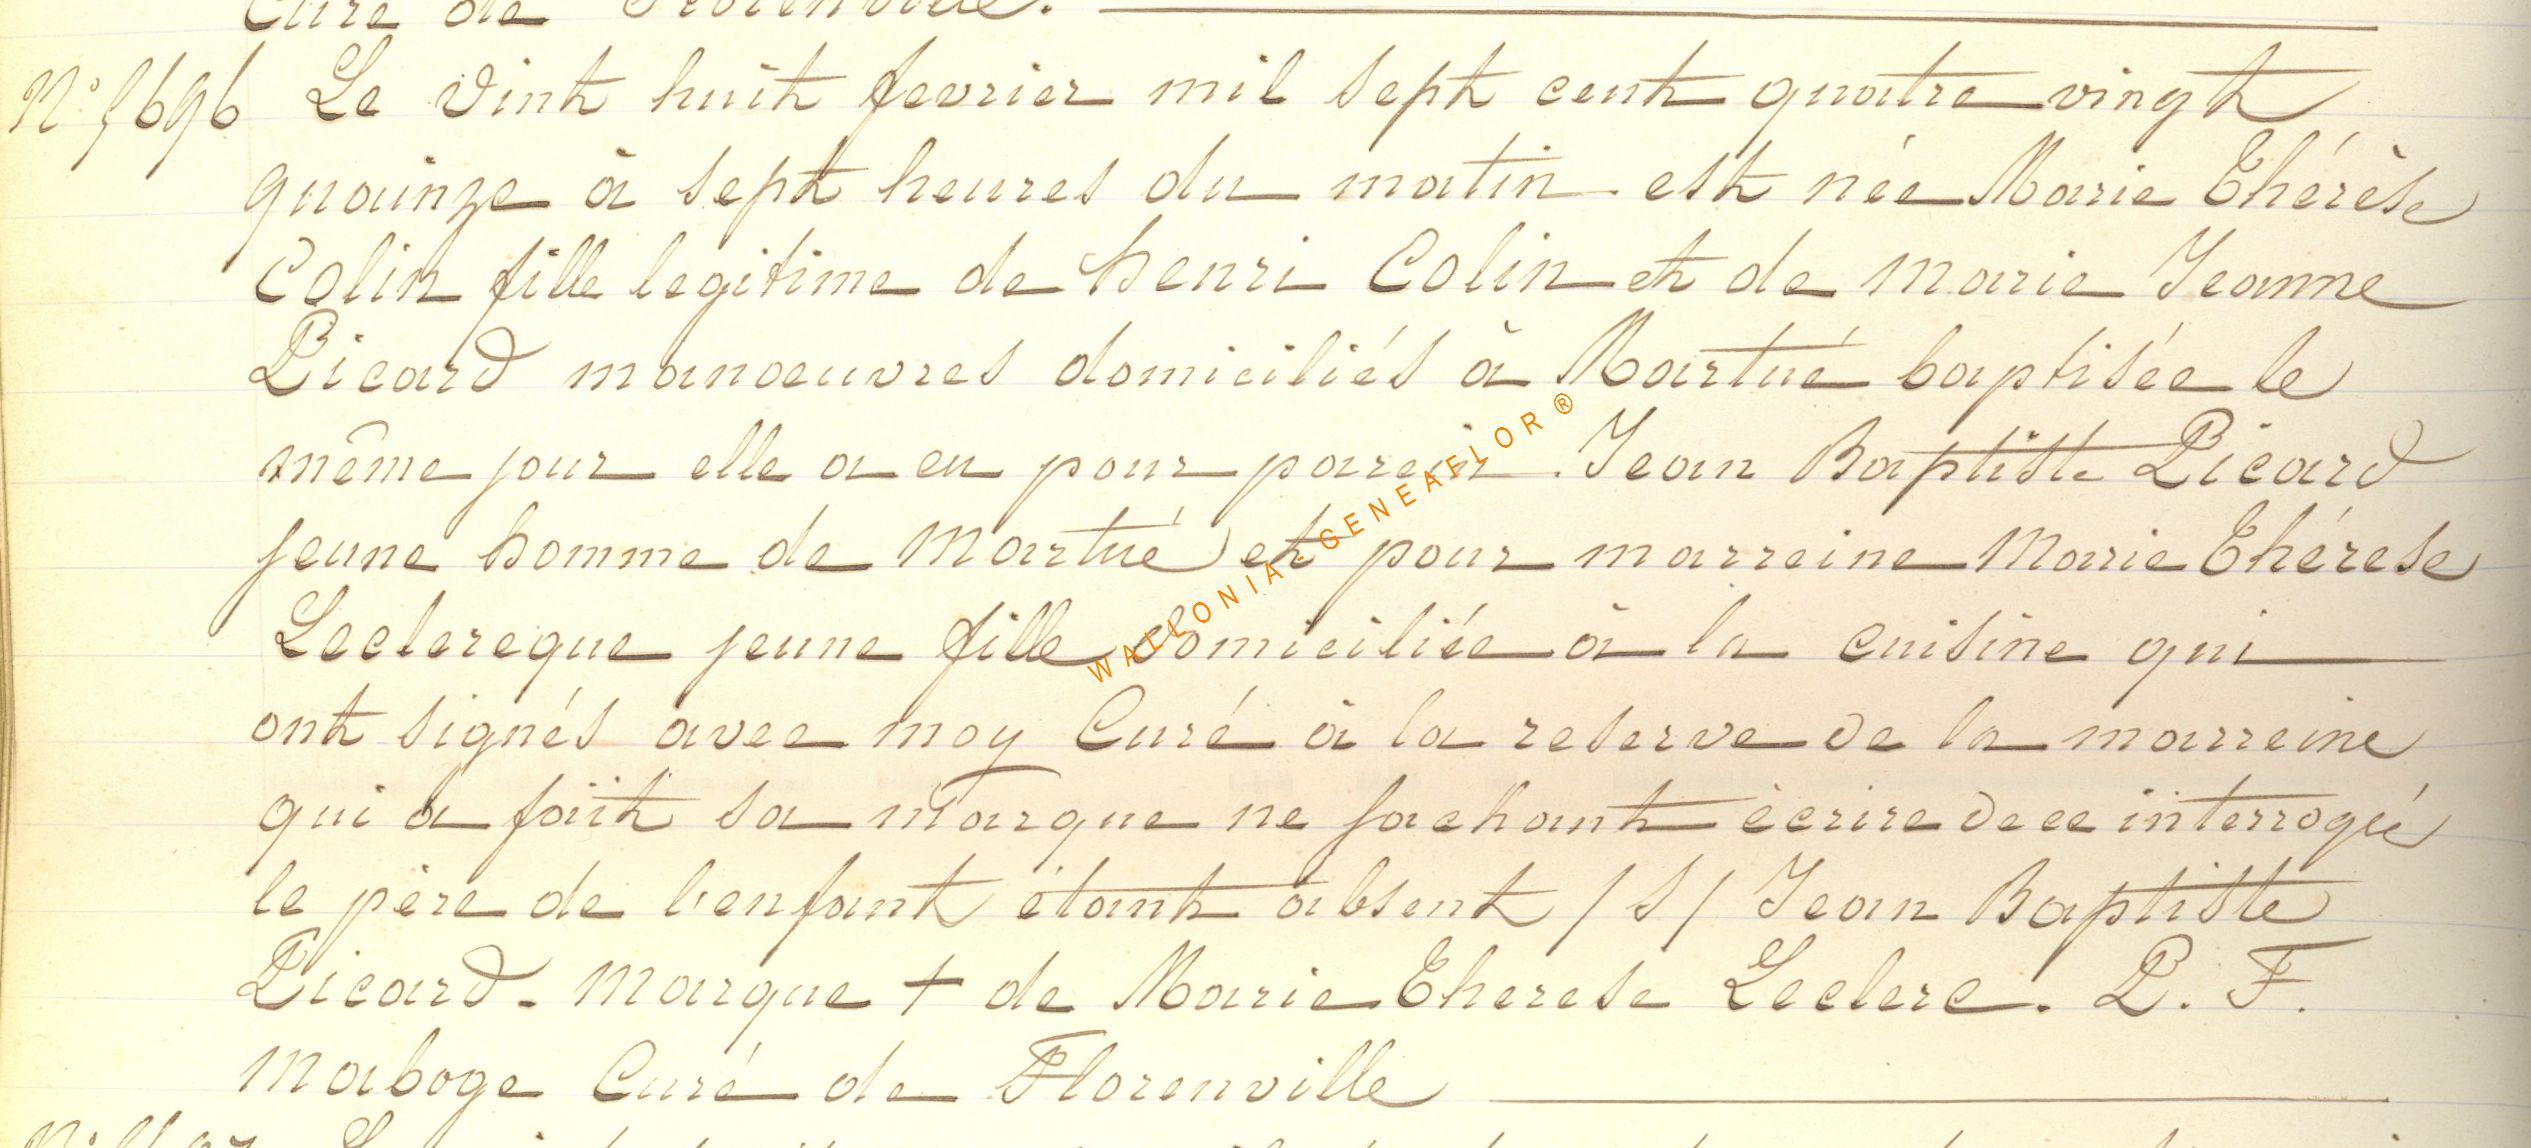 Curé de Florenville.
N° 5696 Le vint huit fevrier mil sept cent quatre vingt
quainze à sept heures du matin est née Marie Thérèse
Colin fille legitime de henri Colin et de Marie Jeanne
Picard manoeuvres domiciliés à Martué baptisée le
même jour elle a eu pour parein Jean Baptiste Picard
jeune homme de Martué et pour marreine Marie Thérese
Leclereque jeune fille domiciliée à la cuisine qui
ont signés avec moy Curé à la reserve de la marreine
qui a fait sa marque ne sachant écrire de ce interrogée
le père de l'enfant étant absent /S/ Jean Baptiste
Picard. Marque + de Marie Therese Leclerc. P. F.
Maboge Curé de Florenville
WALLONIA-GENEAFLOR®